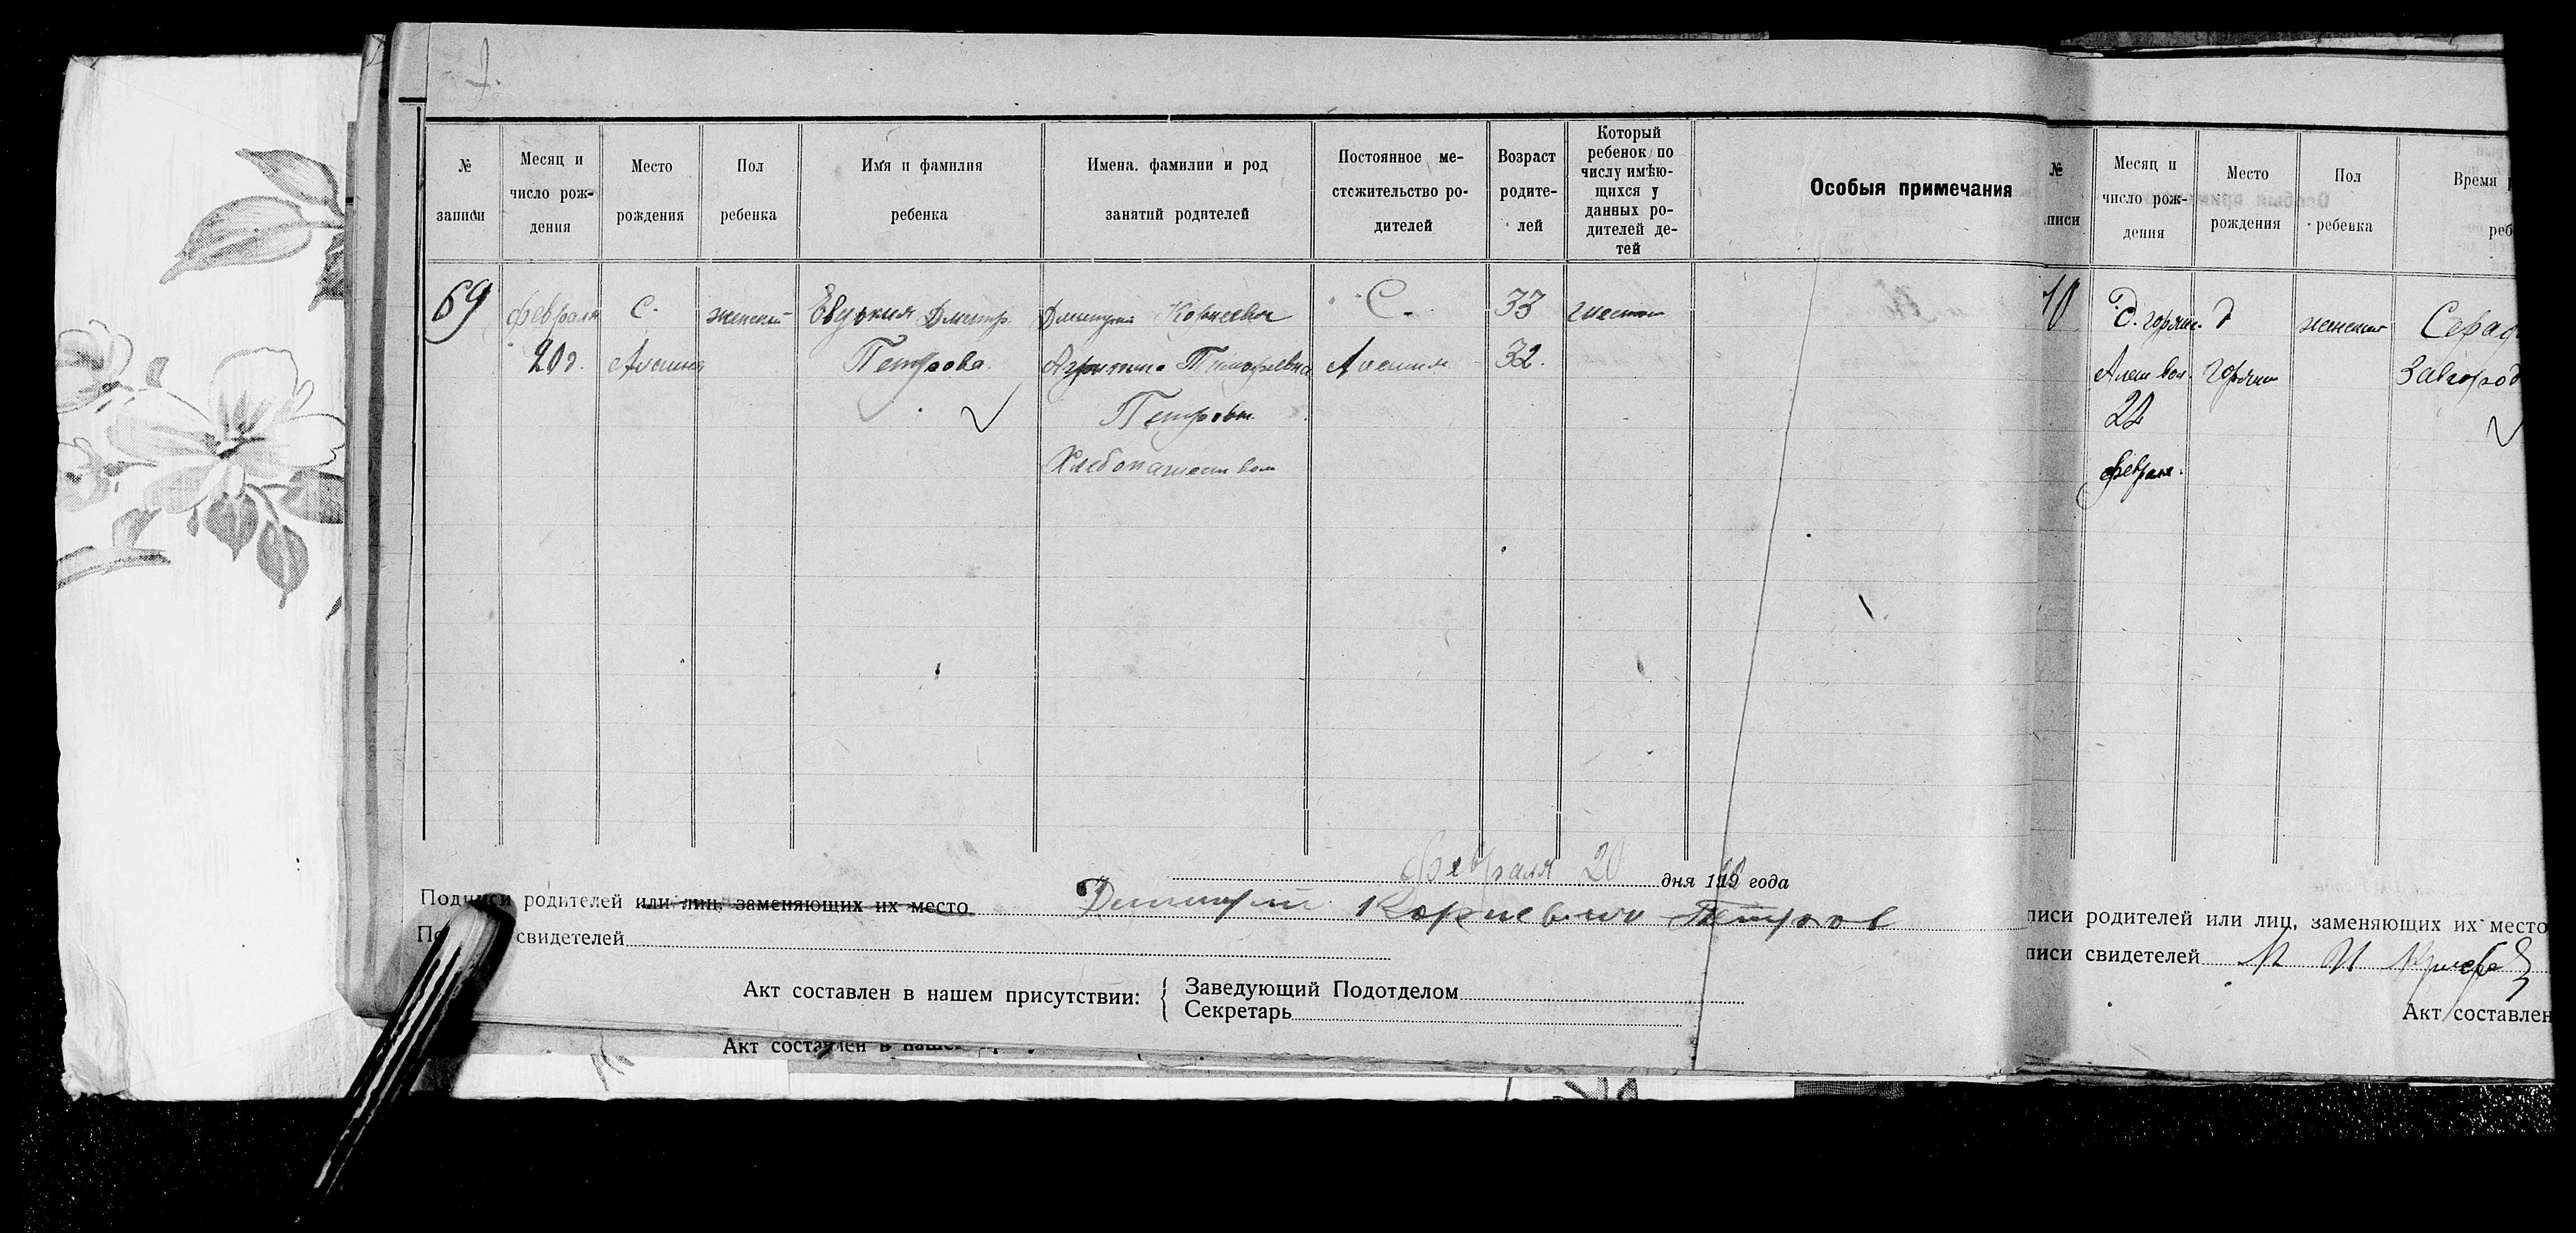 №
записи
Месяц и
число рож-
дения
Место
рождения
Пол
ребенка
Имя и фамилия
ребенка
Имена, фамилии и род
занятий родителей
Постоянное ме-
стожительство ро-
дителей
Возраст
родите-
лей
Который
ребенок по
числу имѣю-
щихся у
данных ро-
дителей де-
тей
Особыя примечания
69
февраля
20 д.
с.
Алешня
женский
Дмитр.
Петрова
Дмитрий Корнеевич
Тимофеевна
Петровы
Хлебопашеством
С.
Алешня
33
32.
шестой
февраля 20 дня 19 года
Подписи родителей или лиц, заменяющих их место Дмитрий Корневич Петров
свидетелей
Акт составлен в нашем присутствии:
Заведующий Подотделом
Секретарь
Акт составлен в
№
писи
Месяц и
число рож-
дения
Место
рождения
Пол
ребенка
Время
реб
70
22
февраля.
д
женский
Сера
Завгород
писи родителей или лиц, заменяющих их место
писи свидетелей
Акт составлен